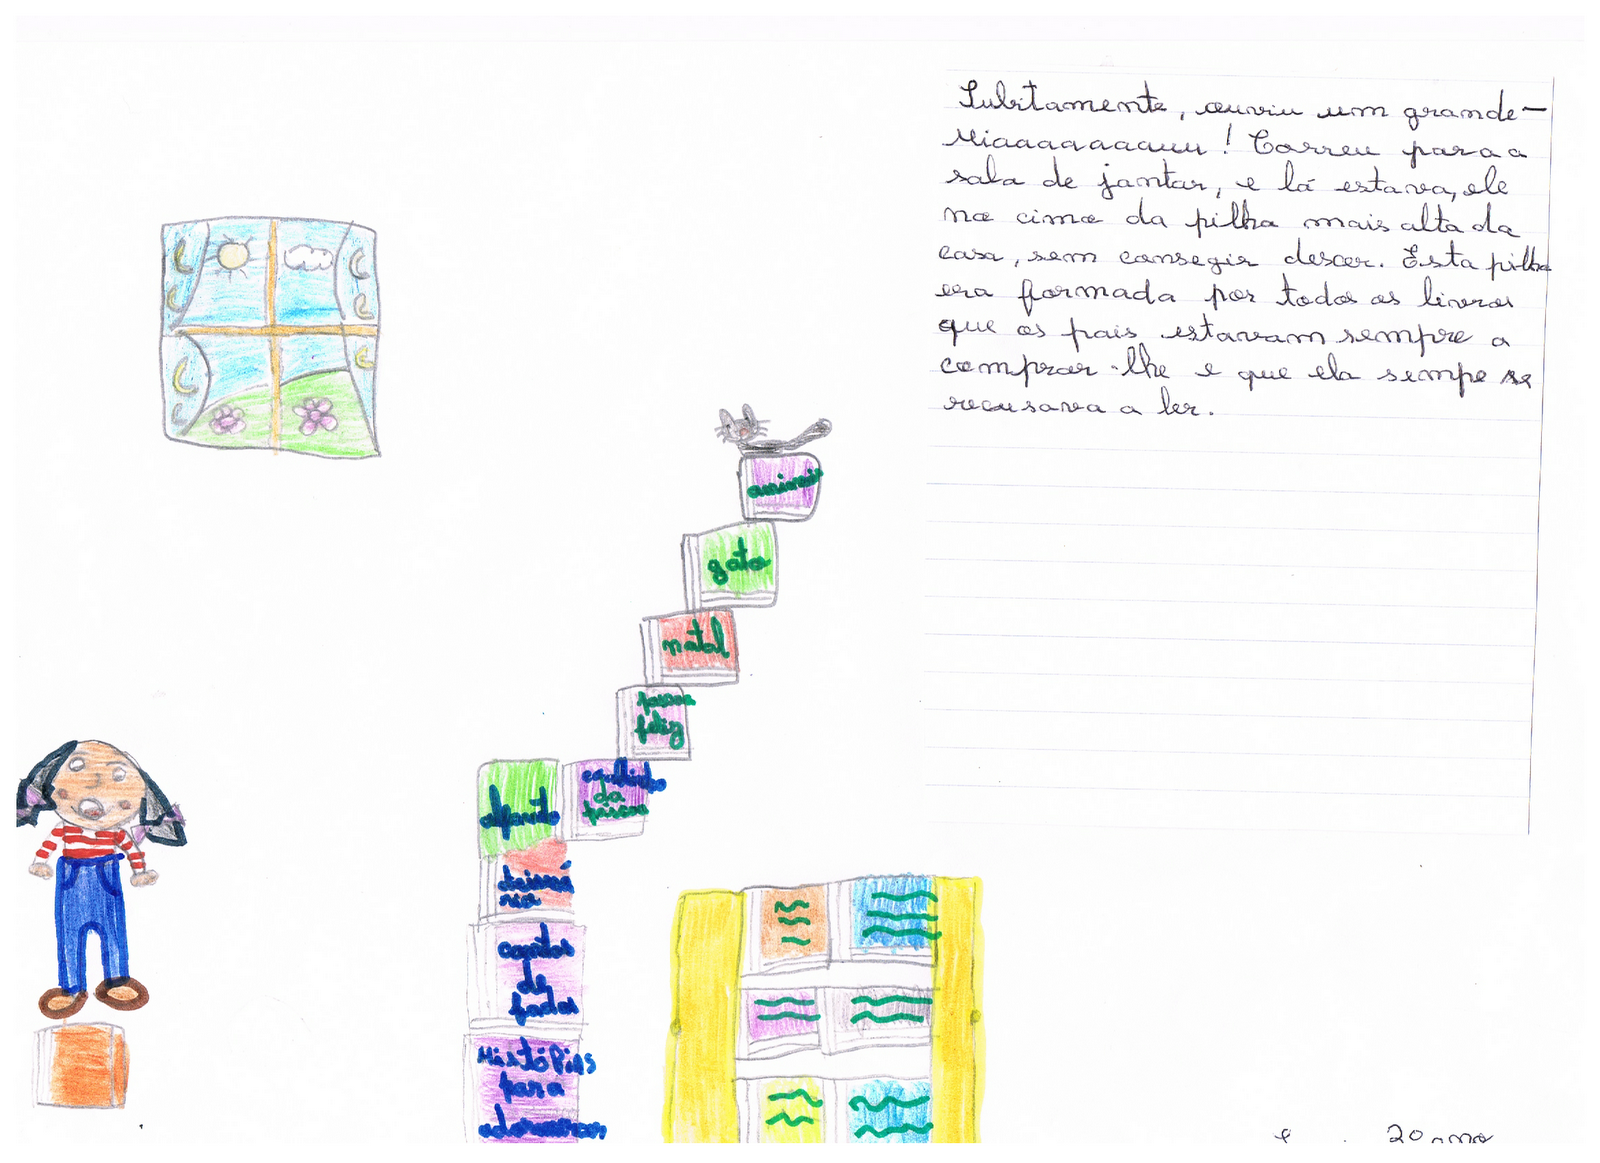 Subitamente, ouviu um grande-
Miaaaaaaauuu! Correu para a
sala de jantar, e lá estava, ele
no cimo da pilha mais alta da
casa, sem consegir descer. Esta pilha
era formada por todos os livros
que os pais estavam sempre a
comprar-lhe e que ela sempe se
recusava a ler.
animais
gato
natal
pascoa
feliz
alfavito
coelhinho
da
páscoa
dicioná
rio
contos
de
fadas
Histórias
para
adormecer
2º ano